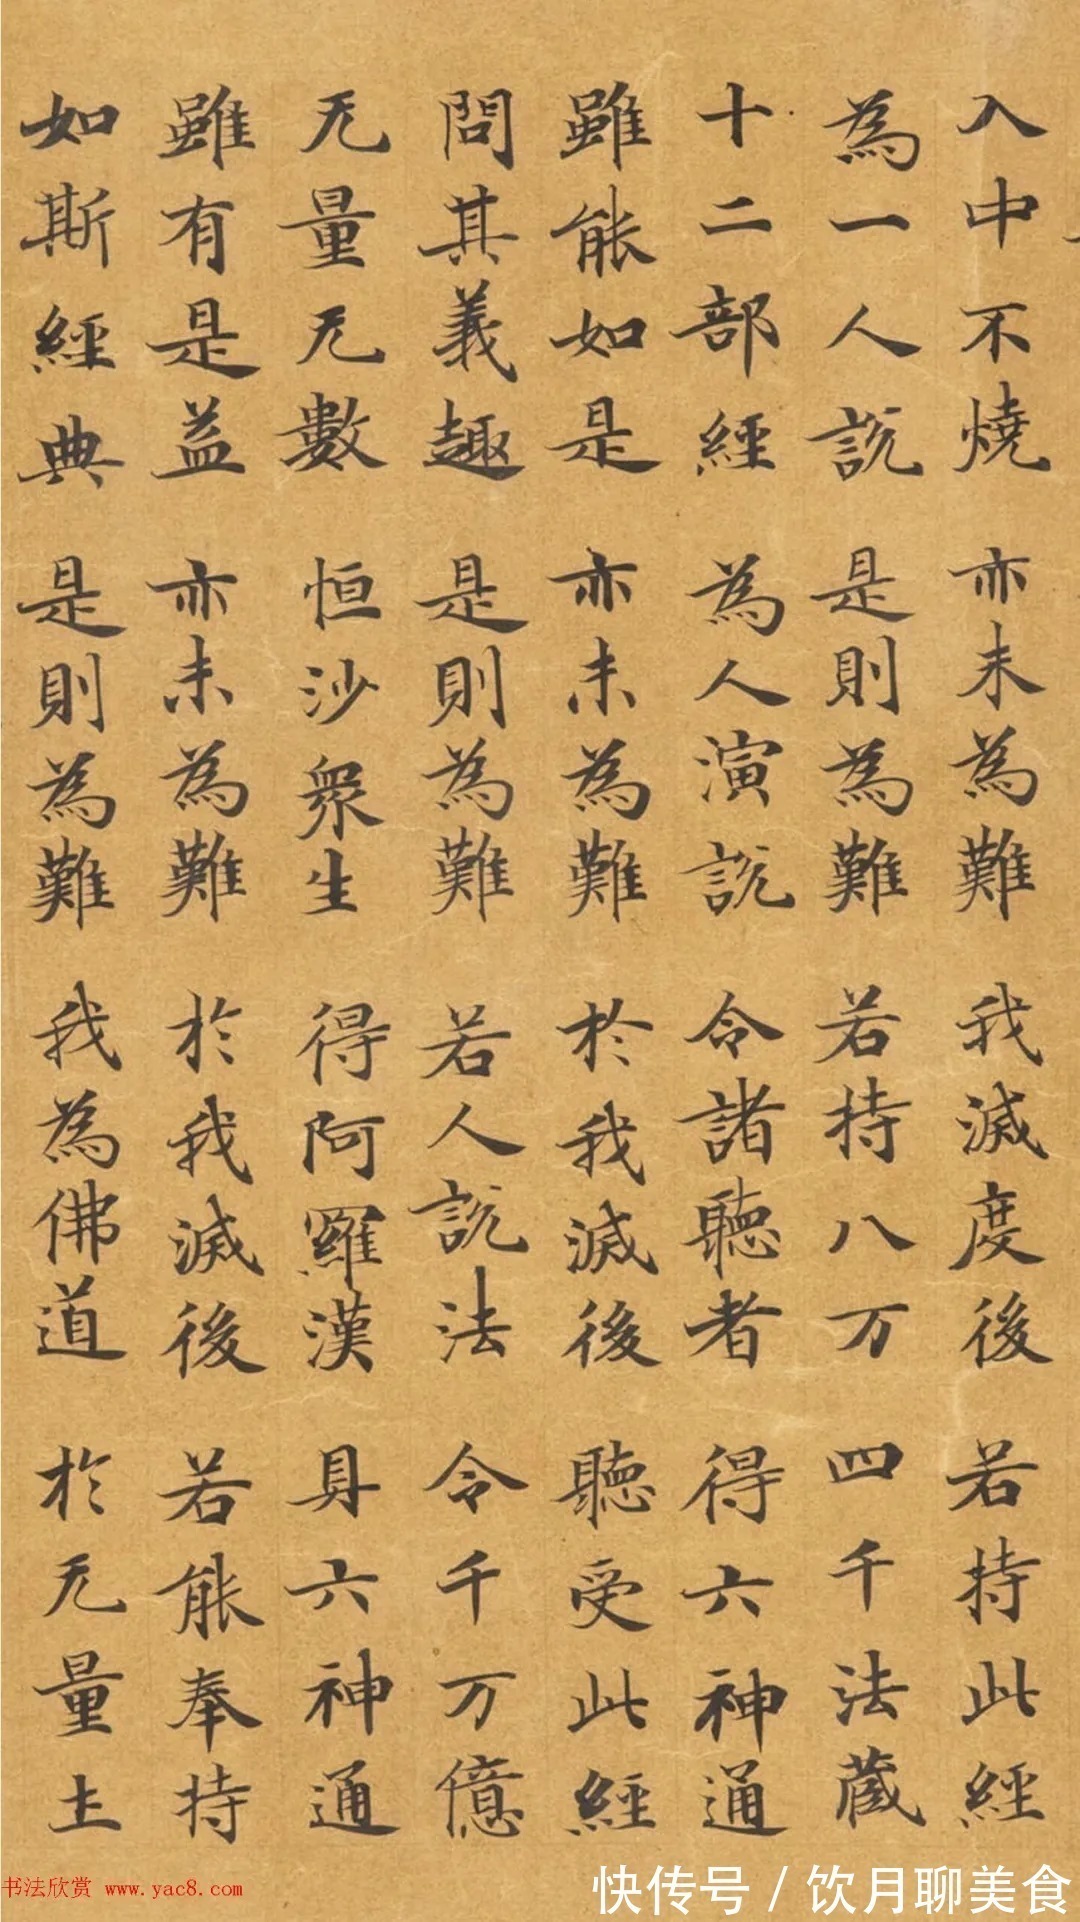 入中不燒 亦未為難 我滅度後 若持此經
為一人說 是則為難 若持八万 四千法藏
十二部經 為人演說 令諸聽者 得六神通
雖能如是 亦未為難 於我滅後 聽受此經
問其義趣 是則為難 若人說法 令千万億
无量无數 恒沙衆生 得阿羅漢 具六神通
雖有是益 亦未為難 於我滅後 若能奉持
如斯經典 是則為難 我為佛道 於无量土
书法欣赏 www.yac8.com
快传号/饮月聊美食